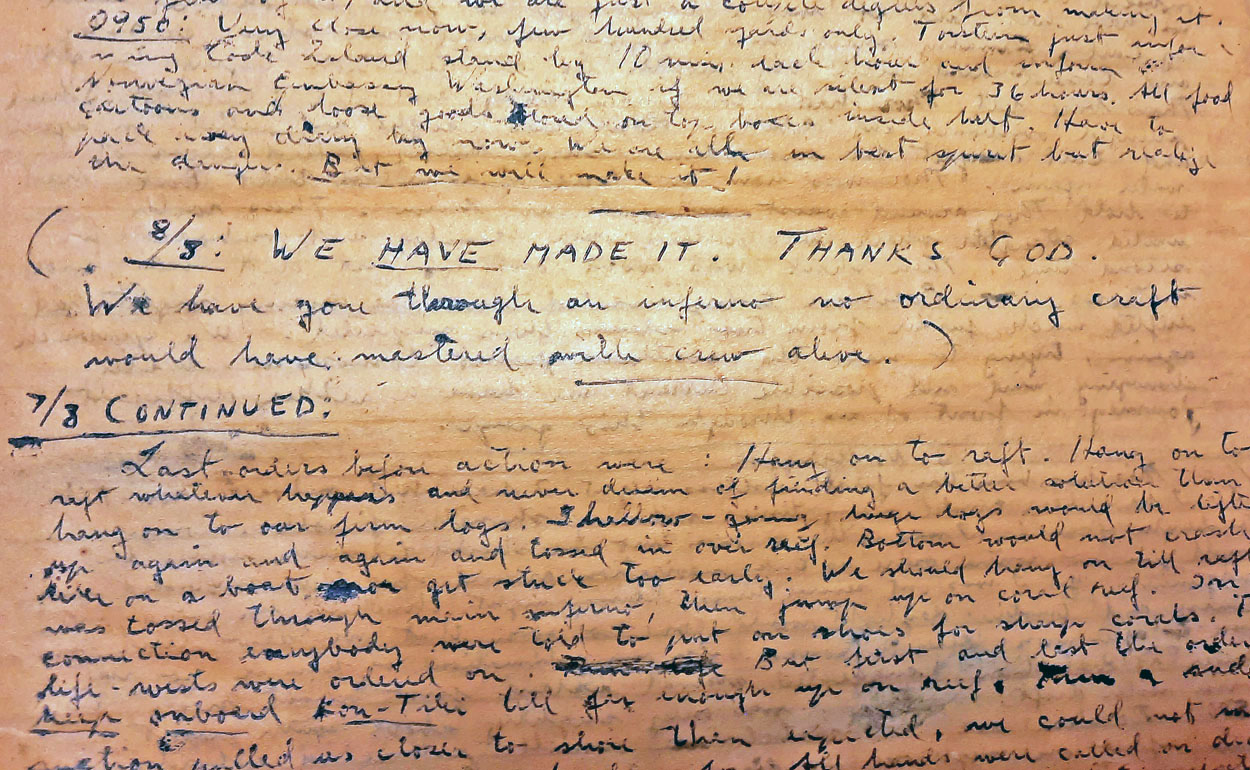 and we are just a couple degrees from making it.
0950: Very close now, few hundred yards only. Torstein just infor
ming Cook Island stand by 10 min. each hour and inform
Norwegian Embassy Washington if we are silent for 36 hours. All food
cartoons and loose goods stored on top boxes inside hutt. Have to
pack my diary by now. We are all in best spirit but realize
the danger. But we will make it!
( 8/8: WE HAVE MADE IT. THANKS GOD.
We have gone through an inferno no ordinary craft
would have mastered with crew alive. )
7/8 CONTINUED:
Last orders before action were: Hang on to raft. Hang on to
raft whatever happens and never dream of finding a better solution than
hang on to our firm logs. Shallow-going huge logs would be lifted
up again and again and tossed in over reef. Bottom would not crash
like on a boat or get stuck too early. We should hang on till raft
was tossed through main inferno, then jump up on coral reef. In
connection everybody were told to put on shoes for sharp corals.
life-vests were ordered on. But first and last the order
keep onboard Kon-Tiki till far enough up on reef. a sud
suction pulled us closer to shore than expected, we could not
All hands were called on